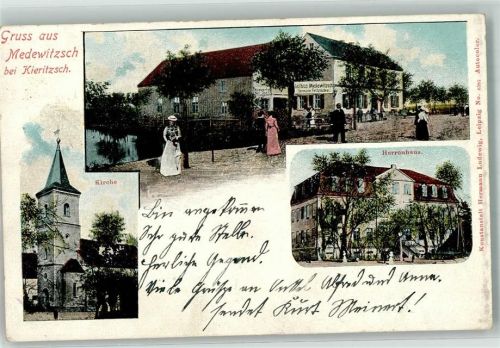 Gruss aus
Medewitzsch
bei Kieritzsch.
Gasthaus Medewitzsch
Kirche
Herrenhaus.
Kunstanstalt Hermann Ludewig, Leipzig No. 4280 Autocolor.
Bin angekommen
Sehr gute Stelle.
Herrliche Gegend.
Viele Grüße an Onkel Alfred und Anna.
sendet Kurt Meinert!